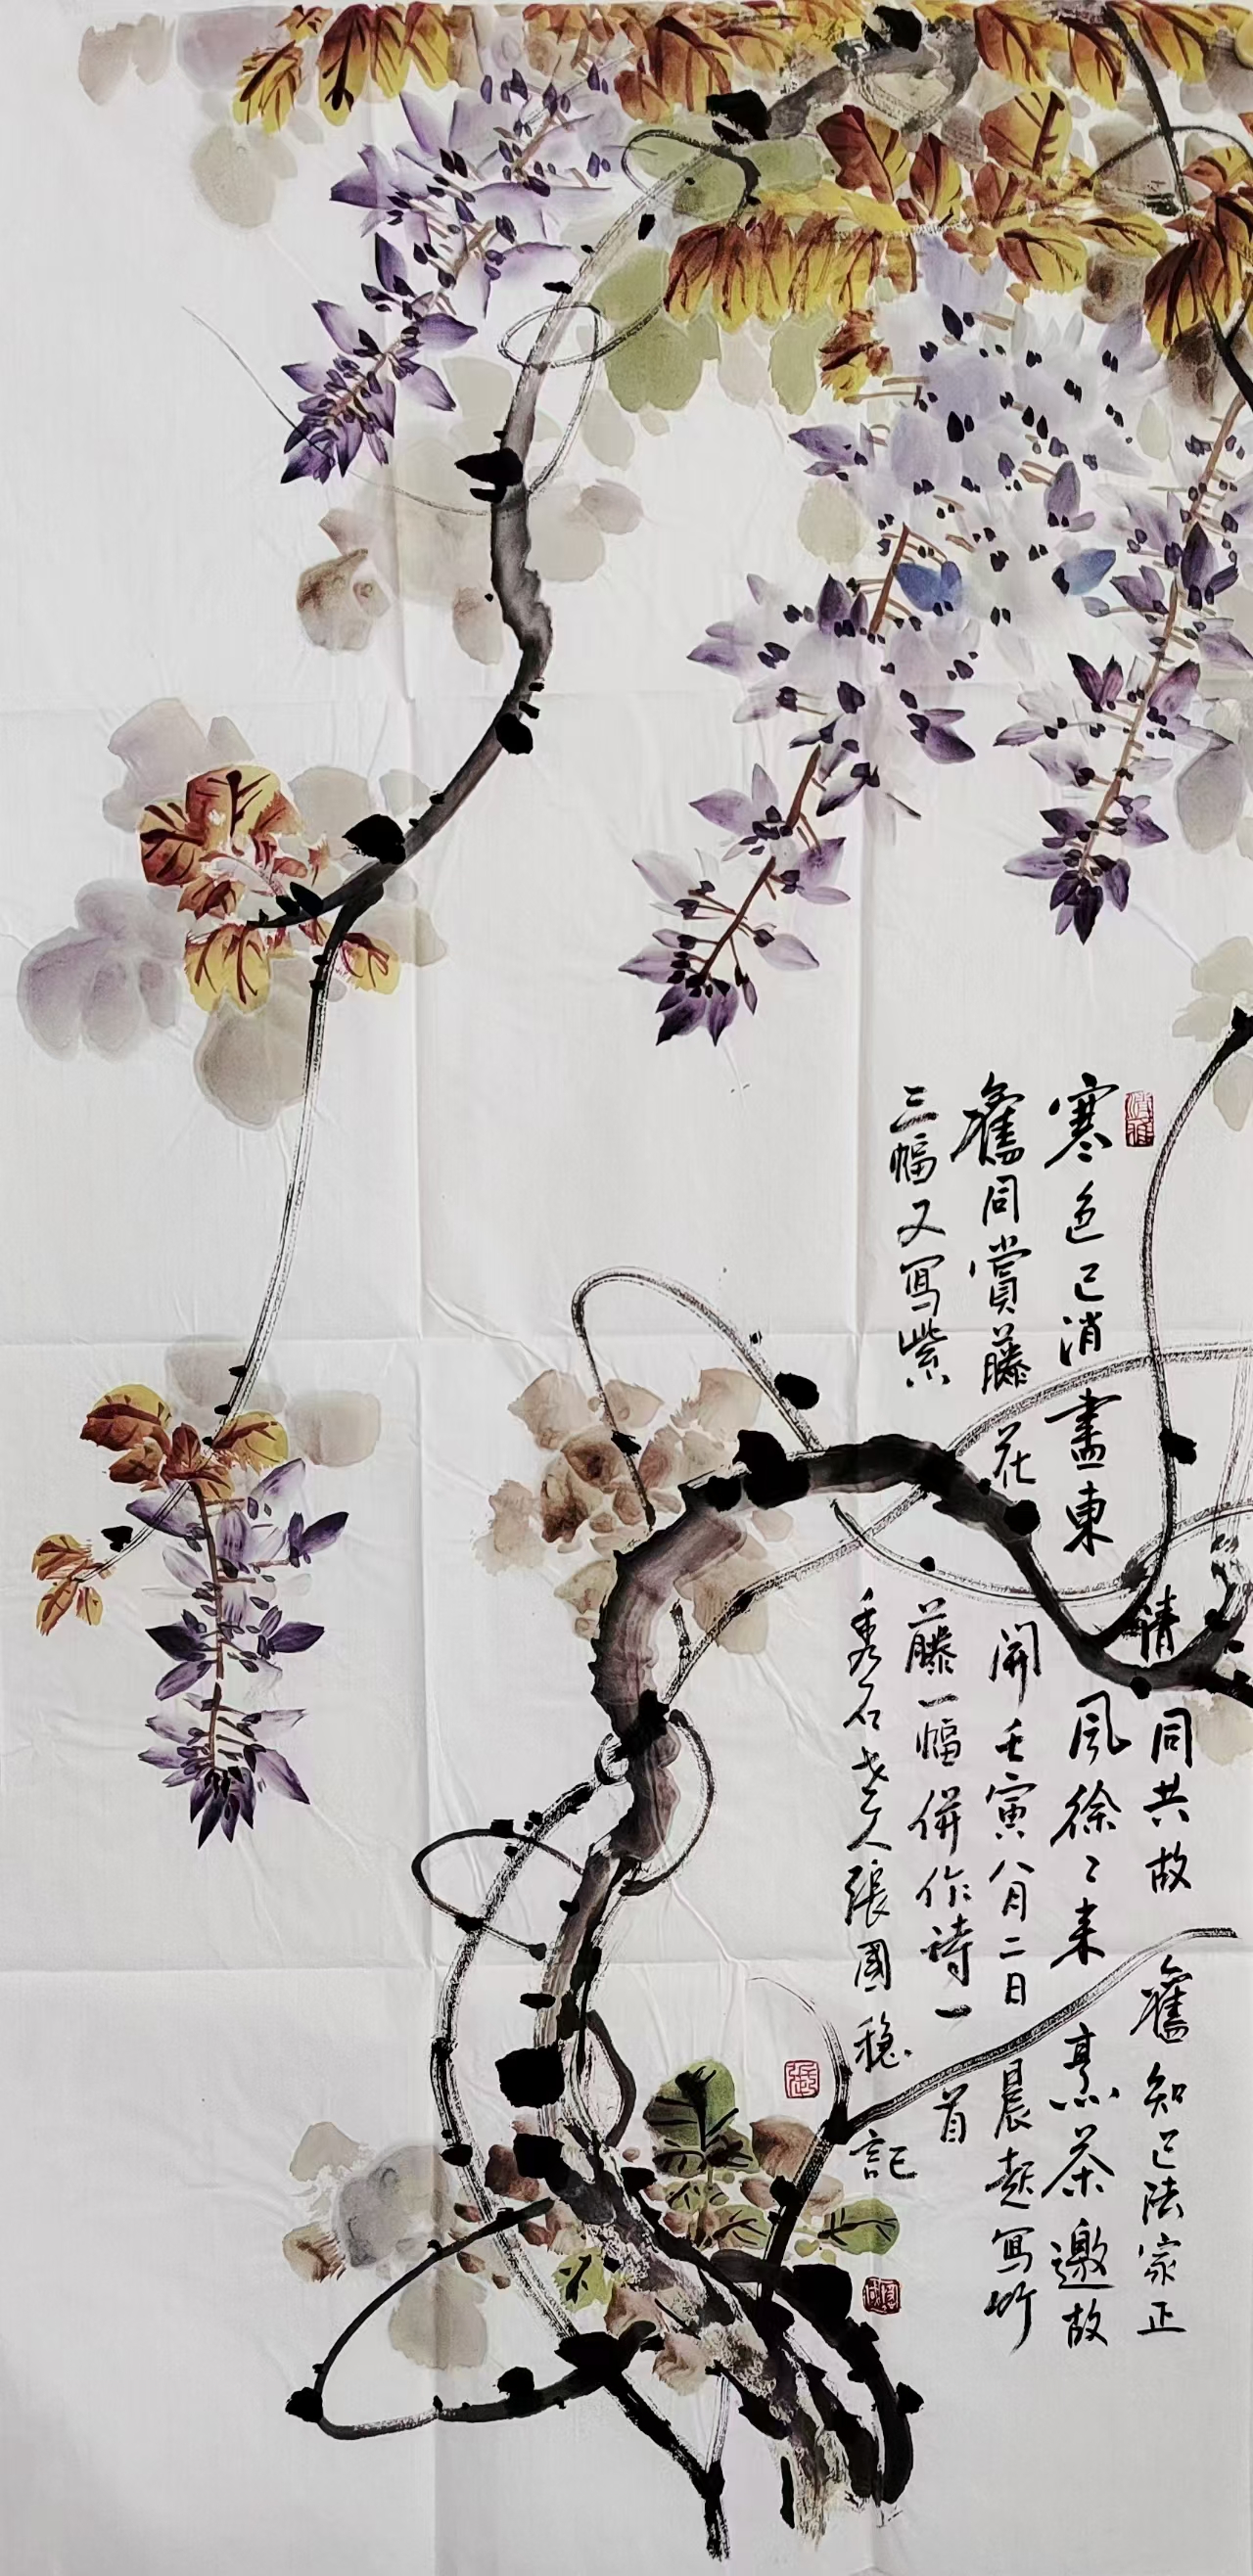 請同共故舊知己法家正
寒色已消盡東風徐〻來烹茶邀故
舊同賞藤花開壬寅八月二日晨起寫竹
三幅又寫紫藤一幅併作詩一首
秀石老人張國穩記